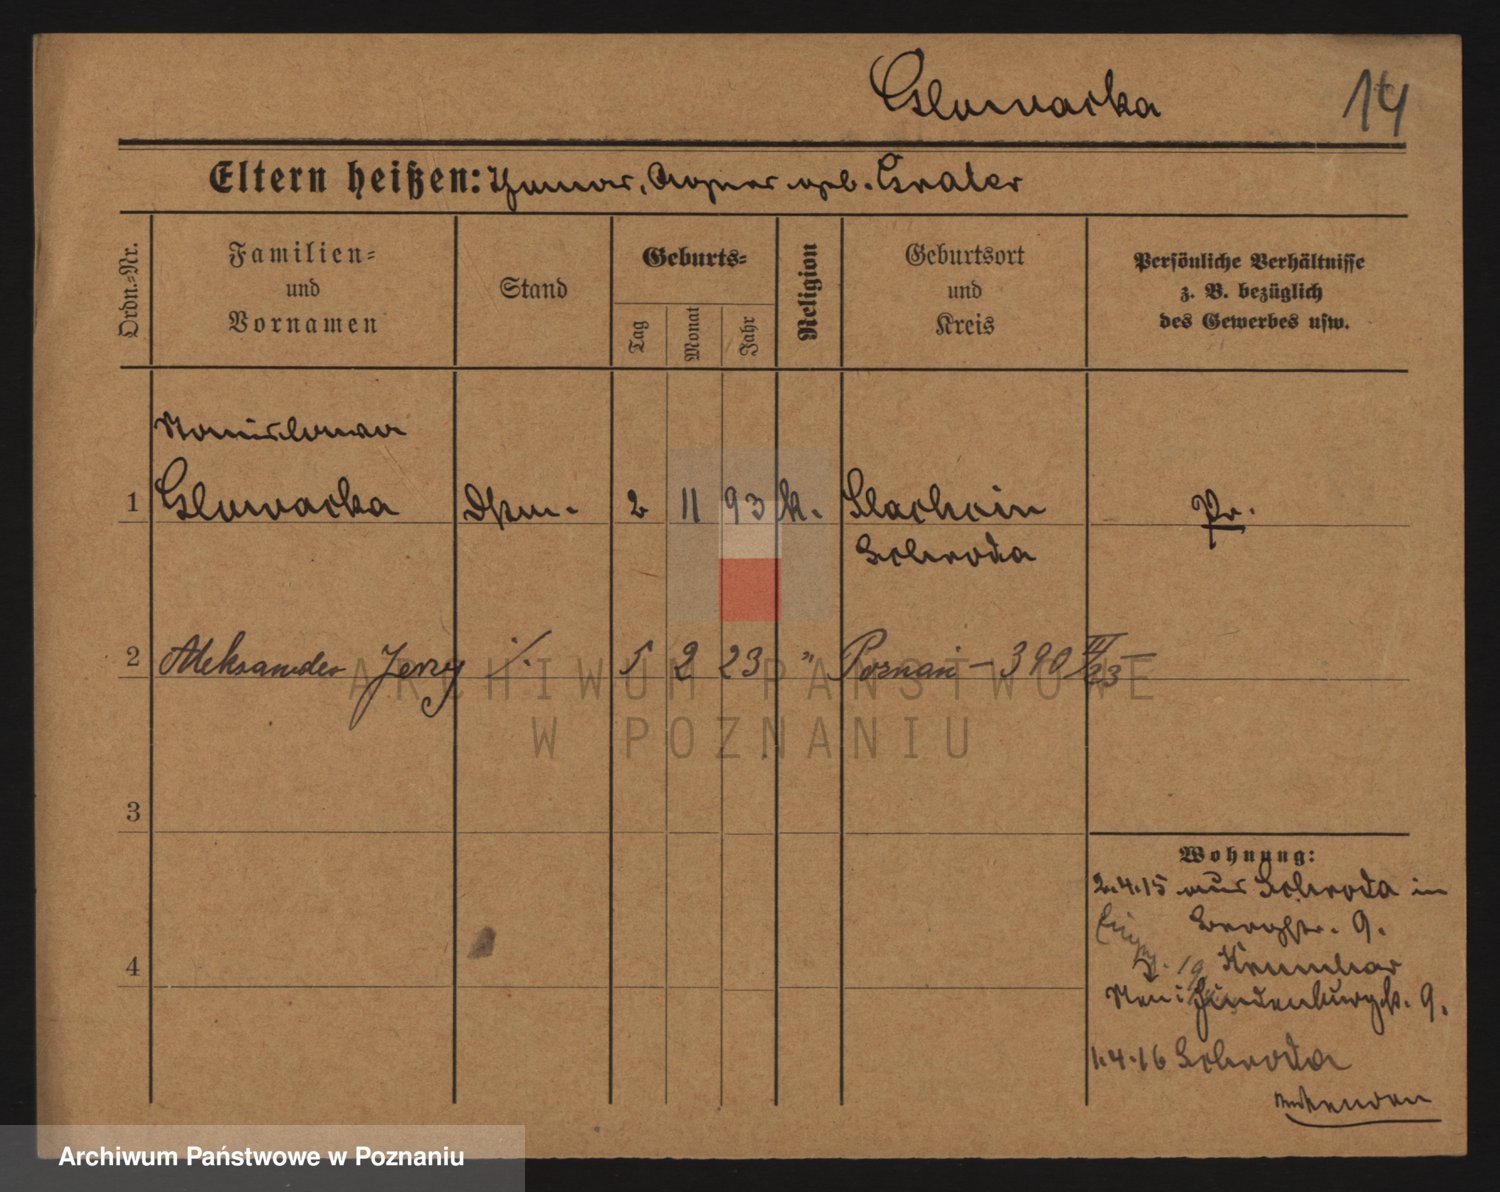 Glowacka
14
Eltern heißen: Thomas, Agnes geb. Grater
Ordn.-Nr.
Familien-
und
Vornamen
Stand
Geburts-
Tag
Monat
Jahr
Religion
Geburtsort
und
Kreis
Persönliche Verhältnisse
z. B. bezüglich
des Gewerbes usw.
Stanislawa
1 Glowacka 2 11 93 k. Slachcin Pr.
Schroda
2 Aleksander Jerzy ./. 5 2 23 " Poznań – 390 II/23
3
4
Wohnung:
2.4.15 aus Schroda in
Bergstr. 9.
Hindenburgstr. 9.
1.4.16 Schroda
ARCHIWUM PAŃSTWOWE
W POZNANIU
Archiwum Państwowe w Poznaniu